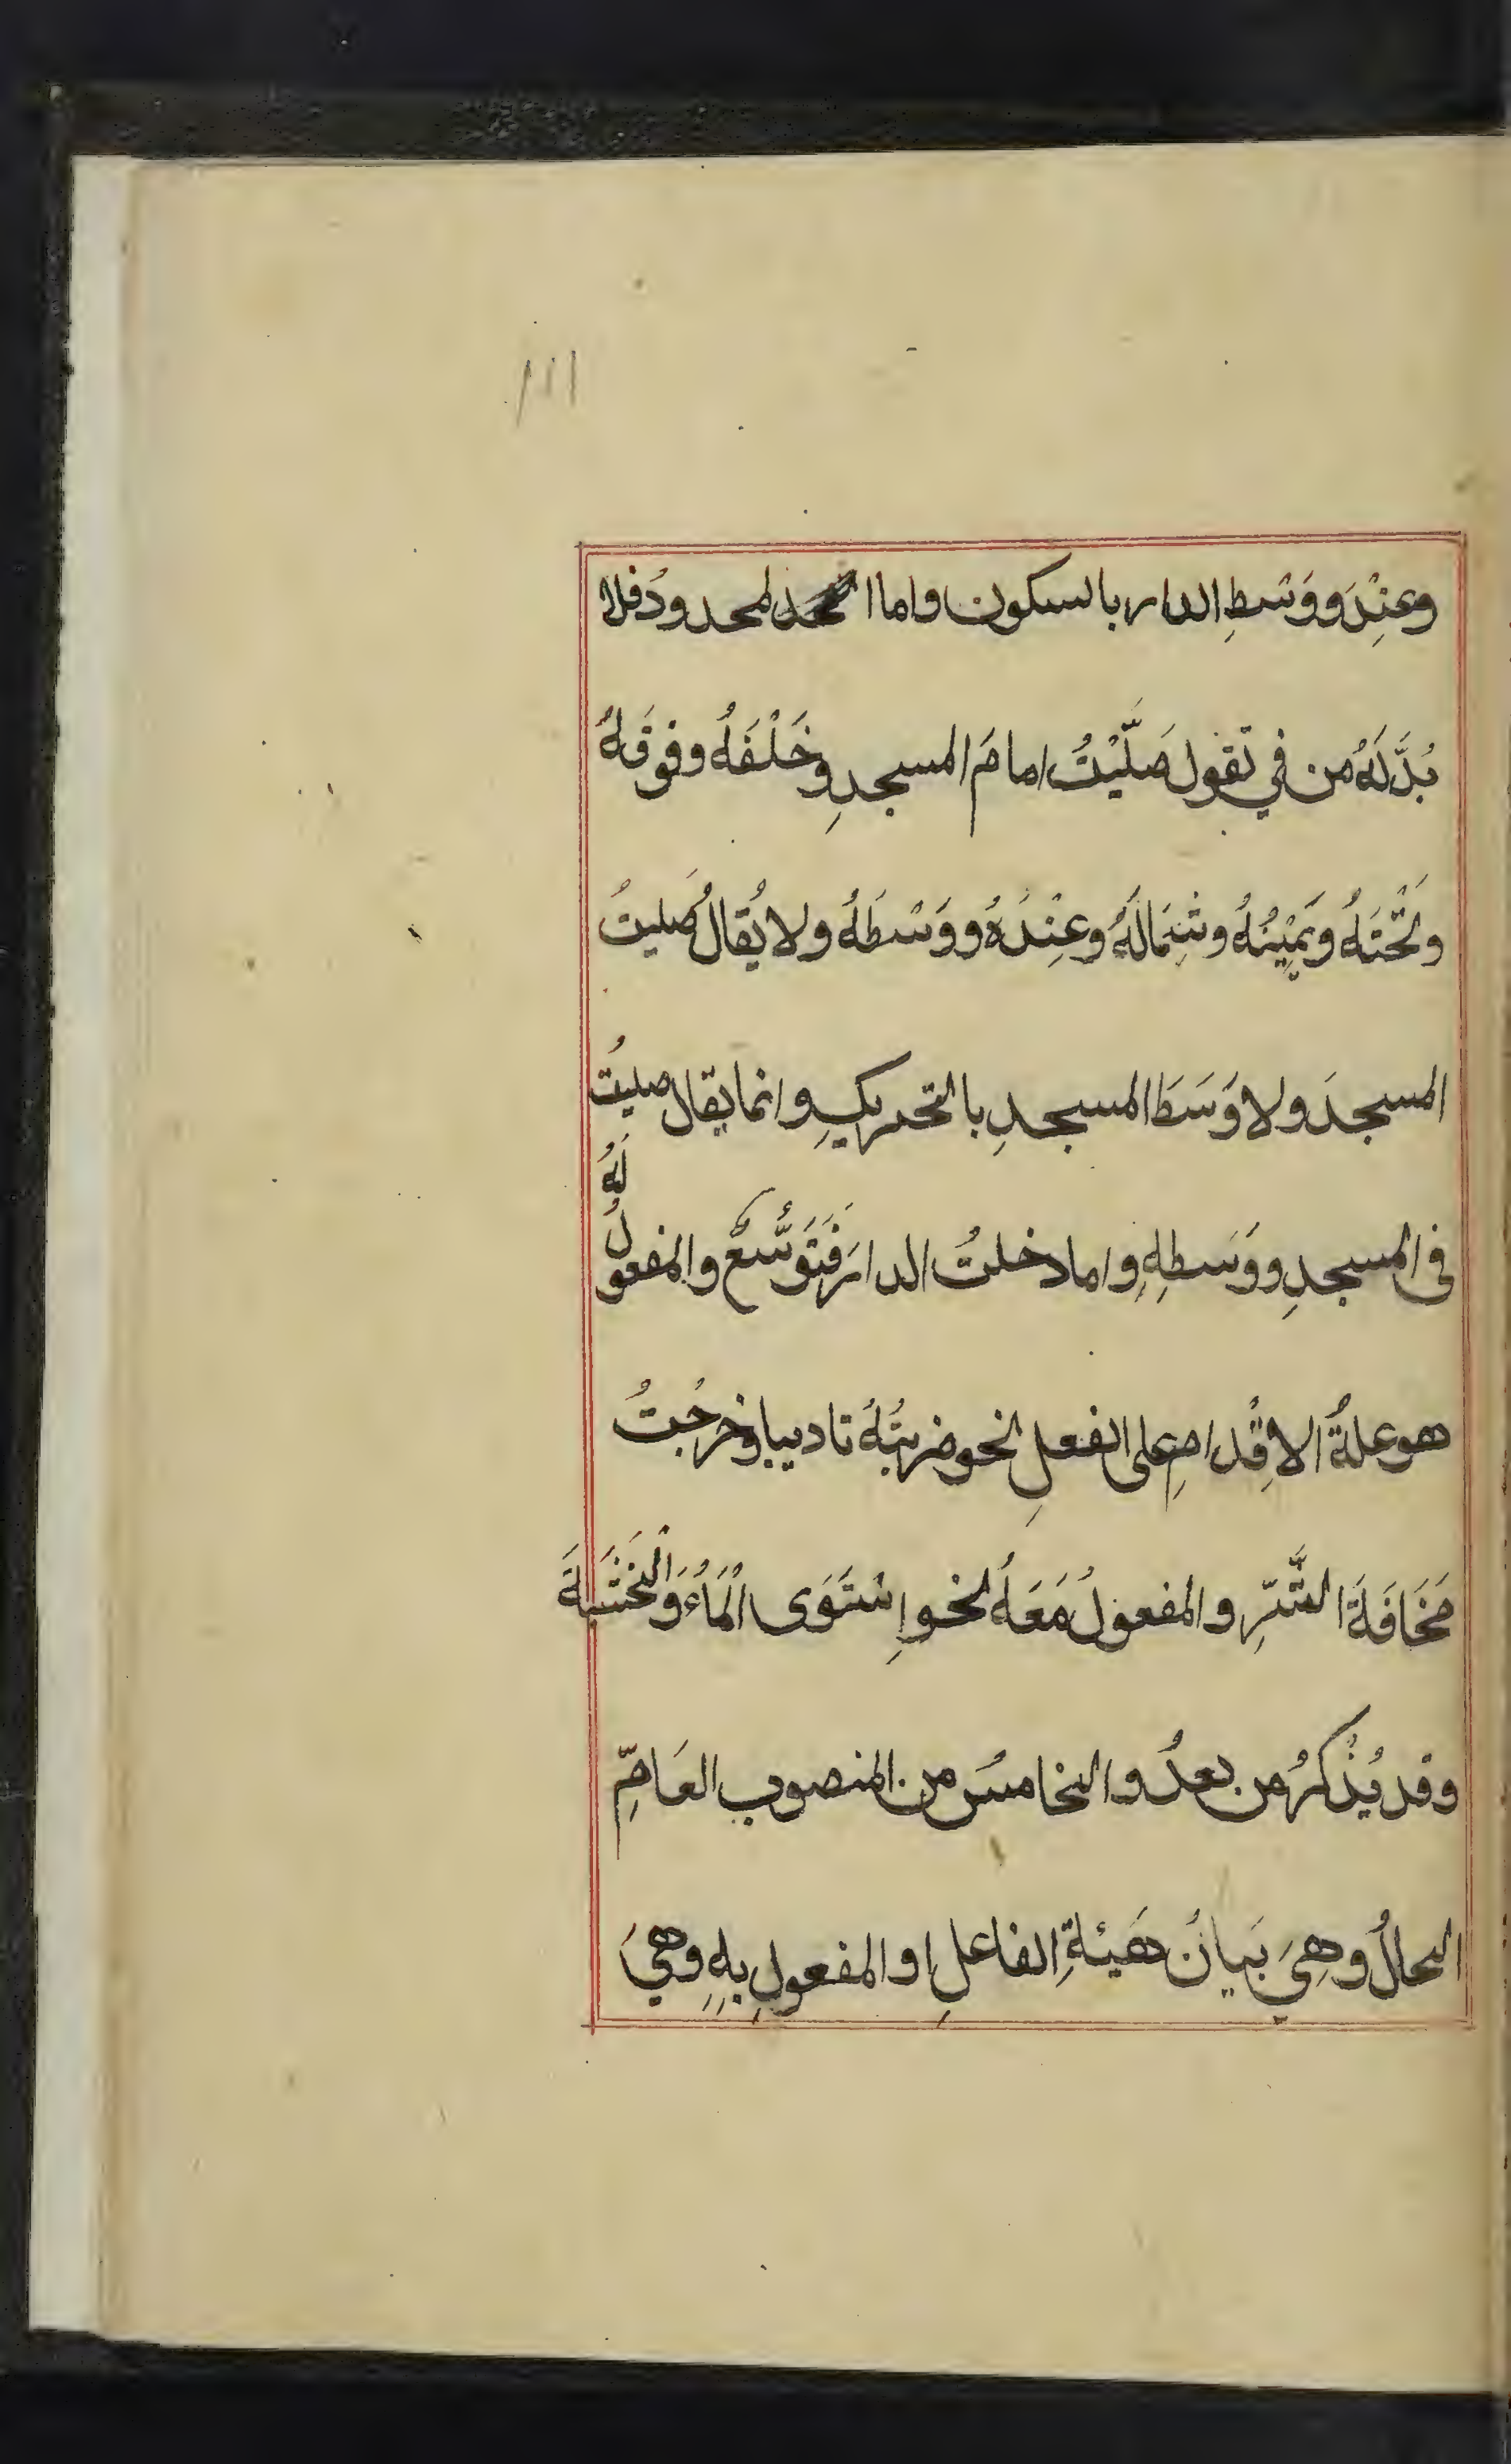 ١١١
وعِنْدَ ووَسْطِ الدار بالسكون واما المحدودُ فلا
بُدَّ لَهُ من في تقول صَلَّيْتُ امامَ المسجدِ وخَلْفَهُ وفوقَهُ
وتَحْتَهُ ويَمِيْنُهُ وشِمَالَهُ وعِنْدَهُ ووَسْطَهُ ولا يُقالُ صَليتُ
المسجدَ ولا وَسَطَ المسجدِ بالتحريكِ وانما يقال صليتُ
في المسجدِ ووَسَطِهِ واما دخلتُ الدارَ فَتَوَسُّعٌ والمفعولُ لَهُ
هو علةُ الاِقْدامِ على الفعلِ نحو ضربتُهُ تاديبا وخرجتُ
مَخَافَةَ الشَّرِّ والمفعولُ مَعَهُ نحو اِسْتَوَى الْمَاءُ وَالْخَشَبَةَ
وقد يُذْكَرُ من بعدُ والخامسُ من المنصوب العَامِّ
الحالُ وهِيَ بَيانُ هَيئةِ الفاعلِ او المفعولِ بِهِ وهيَ